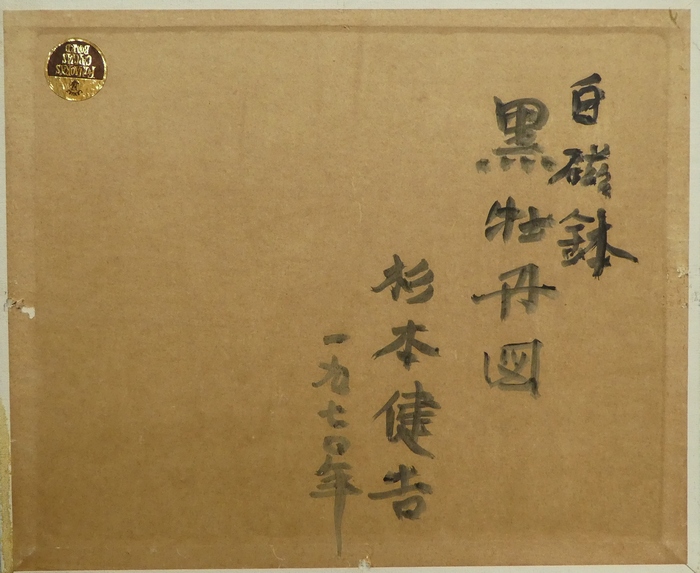 白磁鉢
黒牡丹図
杉本健吉
一九七〇年
CANVAS
BOARD